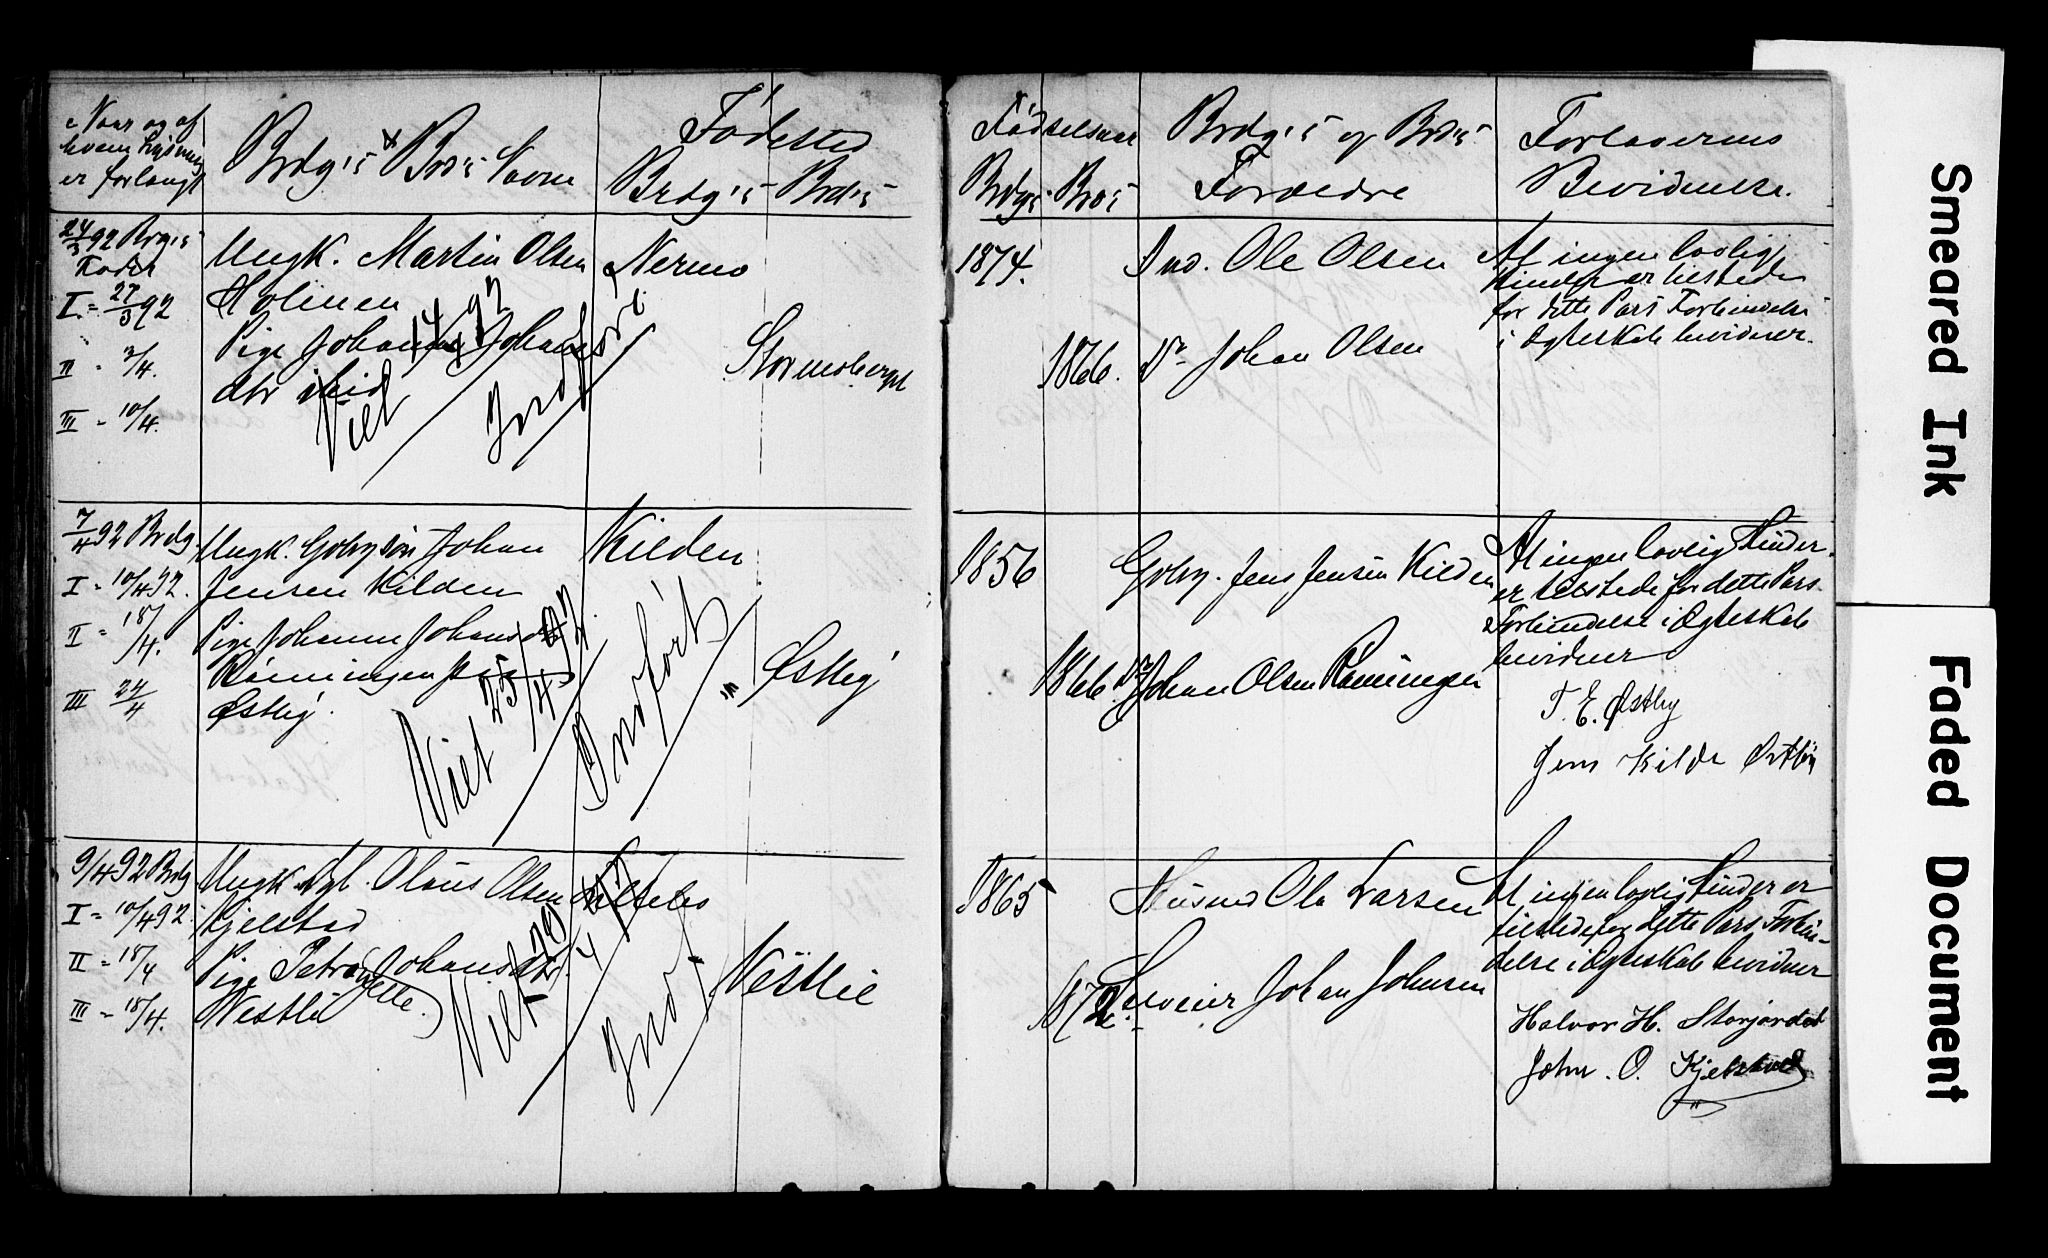 Naar og af
hvem Lysning
er forlangt
Brdg's & Brd's Navne
Fødested
Brdg's Brd's
Fødselsaar
Brdg's Brd's
Brdg's og Brd's
Forældre
Forloverens
Bevidnelse.
24/3 92 Brdg's
Fader
I = 27/3 92
II - 3/4.
III - 10/4.
Ungk. Martin Olsen
Holmen
Pige Johanne Johans
dtr ibid
Viet 14/4 92
Indført
Nermo
Stormoberget
1874.
1866.
Ind. Ole Olsen
Do Johan Olsen
At ingen lovlige
Hinder er tilstede
for dette Pars Forbindelse
i Ægteskab bevidner.
7/4 92 Brdg.
I = 10/4 92.
II = 18/4.
III 24/4
Ungk. Gbrsøn Johan
Jensen Kilden
Pige Johanne Johansdtr
Rønningen paa
Østlig.
Viet 25/4 92.
Indført
Kilden
Østlig
1856
1866.
Gbr. Jens Jensen Kilden
Do Johan Olsen Rønningen
At ingen lovlig Hinder
er tilstede for dette Pars
Forbindelse i Ægteskab
bevidner
T. E. Østby
Jens Kilde
9/4 92 Brdg
I = 10/4 92.
II = 18/4
III = 18/4.
Ungk. Olaus Olsen
Kjelstad
Pige Petra Johansdtr.
Westli
Viet 29/4
Indf.
Vestlie
1865
1872.
Husmd Ole Larsen
Johan Johnsen
At ingen lovlig Hinder er
tilstede for dette Pars Forbin-
delse i Ægteskab bevidner
Halvor H. Storjordet
John. O. Kjelstad
Smeared Ink
Faded Document